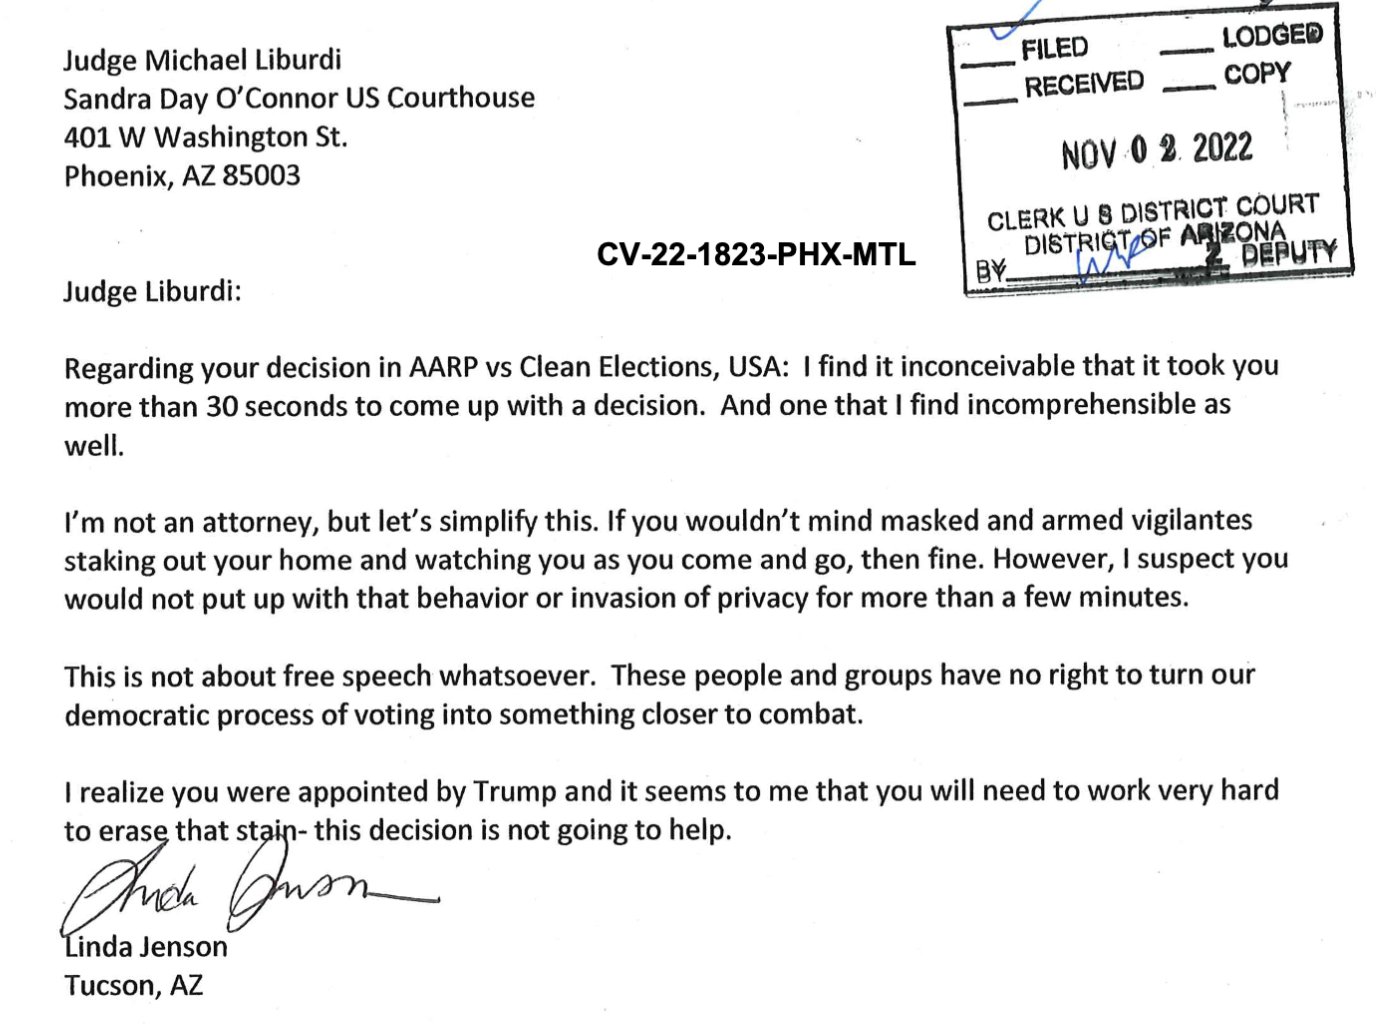 Judge Michael Liburdi
Sandra Day O’Connor US Courthouse
401 W Washington St.
Phoenix, AZ 85003
___ FILED ___ LODGED
___ RECEIVED ___ COPY
NOV 02 2022
CLERK U S DISTRICT COURT
DISTRICT OF ARIZONA
BY Z DEPUTY
CV-22-1823-PHX-MTL
Judge Liburdi:
Regarding your decision in AARP vs Clean Elections, USA:  I find it inconceivable that it took you
more than 30 seconds to come up with a decision.  And one that I find incomprehensible as
well.
I’m not an attorney, but let’s simplify this. If you wouldn’t mind masked and armed vigilantes
staking out your home and watching you as you come and go, then fine. However, I suspect you
would not put up with that behavior or invasion of privacy for more than a few minutes.
This is not about free speech whatsoever.  These people and groups have no right to turn our
democratic process of voting into something closer to combat.
I realize you were appointed by Trump and it seems to me that you will need to work very hard
to erase that stain- this decision is not going to help.
Linda Jenson
Linda Jenson
Tucson, AZ